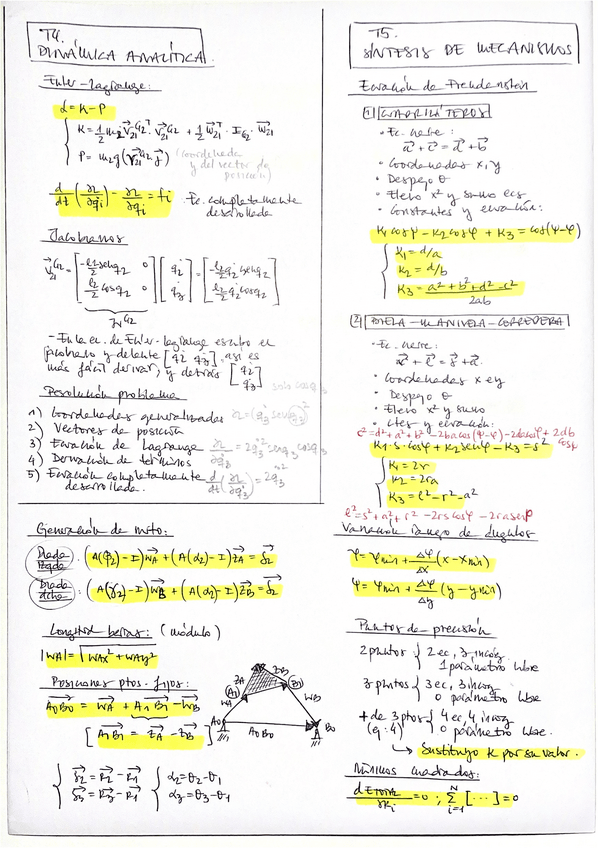 T4.
DINÁMICA ANALÍTICA.
Euler-Lagrange:
L = K - P
K = 1/2 m2 v21^G2T · v21^G2 + 1/2 w21^T · I_G2 · w21
P = m2 g (r21^G2 · j) (coordenada
y del vector de
posición)
d/dt (∂L/∂q̇i) - ∂L/∂qi = fi . Ec. completamente
desarrollada
Jacobianos
v21^G2 = [-L2/2 senq2 0; L2/2 cosq2 0] [q̇2; q̇3] = [-L2/2 q̇2 senq2; L2/2 q̇2 cosq2]
Jv^G2
- En la ec. de Euler-Lagrange escribo el
jacobiano y delante [q̇2 q̇3], así es
más fácil derivar; y detrás [q̇2; q̇3]
Resolución problema
1) Coordenadas generalizadas
2) Vectores de posición
3) Ecuación de Lagrange
4) Derivación de términos
5) Ecuación completamente
desarrollada.
Generación de mvto:
Diada
izqda : (A(β2) - I) WA + (A(α2) - I) ZA = δ2
Diada
dcha : (A(γ2) - I) WB + (A(α2) - I) ZB = δ2
Longitud barras: (módulo)
|WA| = √WAx² + WAy²
Posiciones ptos. fijos:
A0B0 = WA + A1B1 - WB
[A1B1 = ZA - ZB]
ZA ZB
A1 B1
WA WB
A0 A0B0 B0
δ2 = R2 - R1 α2 = θ2 - θ1
δ3 = R3 - R1 α3 = θ3 - θ1
T5.
SÍNTESIS DE MECANISMOS
Ecuación de Freudenstein
1) CUADRILÁTEROS
• Ec. cierre:
a + c = d + b
• Coordenadas x, y
• Despejo θ
• Elevo x² y sumo ecs
• Constantes y ecuación:
K1 cosφ - K2 cosψ + K3 = cos(ψ-φ)
K1 = d/a
K2 = d/b
K3 = a² + b² + d² - c² / 2ab
2) BIELA-MANIVELA-CORREDERA
• Ec. cierre:
r + l = s + a.
• Coordenadas x e y
• Despejo θ
• Elevo x² y sumo
• Ctes y ecuación:
c² = d² + a² + b² - 2ba cos(φ-ψ) - 2da cosφ + 2db cosψ
K1 · s · cosφ + K2 senφ - K3 = s²
K1 = 2r
K2 = 2ra
K3 = l² - r² - a²
l² = s² + a² + r² - 2rs cosφ - 2ra senφ
Variación rango de ángulos
φ = φmin + Δφ/Δx (x - xmin)
ψ = ψmin + Δψ/Δy (y - ymin)
Puntos de precisión
2 puntos { 2 ec, 3 incóg.
1 parámetro libre
3 puntos { 3 ec, 3 incóg
0 parámetro libre
+ de 3 ptos { 4 ec, 4 incóg
(ej: 4) 0 parámetro libre.
→ Sustituyo K por su valor.
Mínimos cuadrados:
dETOTAL/∂Ki = 0 ; Σ i=1 N [...] = 0